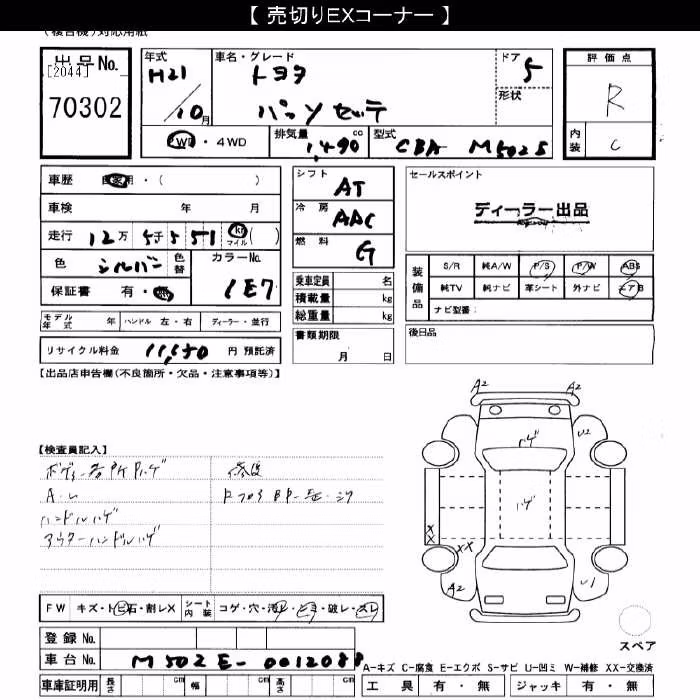 【 売切りEXコーナー 】
(複合機)対応用紙
出品No.
[2044]
70302
年式
H21
10月
車名・グレード
トヨタ
パッソセッテ
ドア
5
形状
評価点
R
内装
C
2WD・4WD
排気量
1,490 cc
型式
CBA M502S
車歴 自家用・( )
車検 年 月
走行 12万 5千 5 51 km マイル ( )
色 シルバー 色替
カラーNo.
1E7
保証書 有・無
モデル年式 年 ハンドル 左・右 ディーラー・並行
リサイクル料金 11,550 円 預託済
シフト AT
冷房 AAC
燃料 G
乗車定員 名
積載量 kg
総重量 kg
書類期限
月 日
セールスポイント
ディーラー出品
装備品
S/R 純A/W P/S P/W ABS
純TV 純ナビ 革シート 外ナビ エアB
ナビ型番:
後日品
【出品店申告欄(不良箇所・欠品・注意事項等)】
【検査員記入】
ボディー各所ハゲ
A.U
ハンドルハゲ
アウターハンドルハゲ
修復
A2
A2
U2
ハゲ
ハゲ
X
X
XX
A2
U1
スペア
FW キズ・トビ石・割レX
シート内装 コゲ・穴・汚レ・ヒヨ・破レ・スレ
登録No.
車台No. M502E-0012088
車庫証明用 長さ cm 幅 cm 高さ cm
A-キズ C-腐食 E-エクボ S-サビ U-凹ミ W-補修 XX-交換済
工具 有・無 ジャッキ 有・無